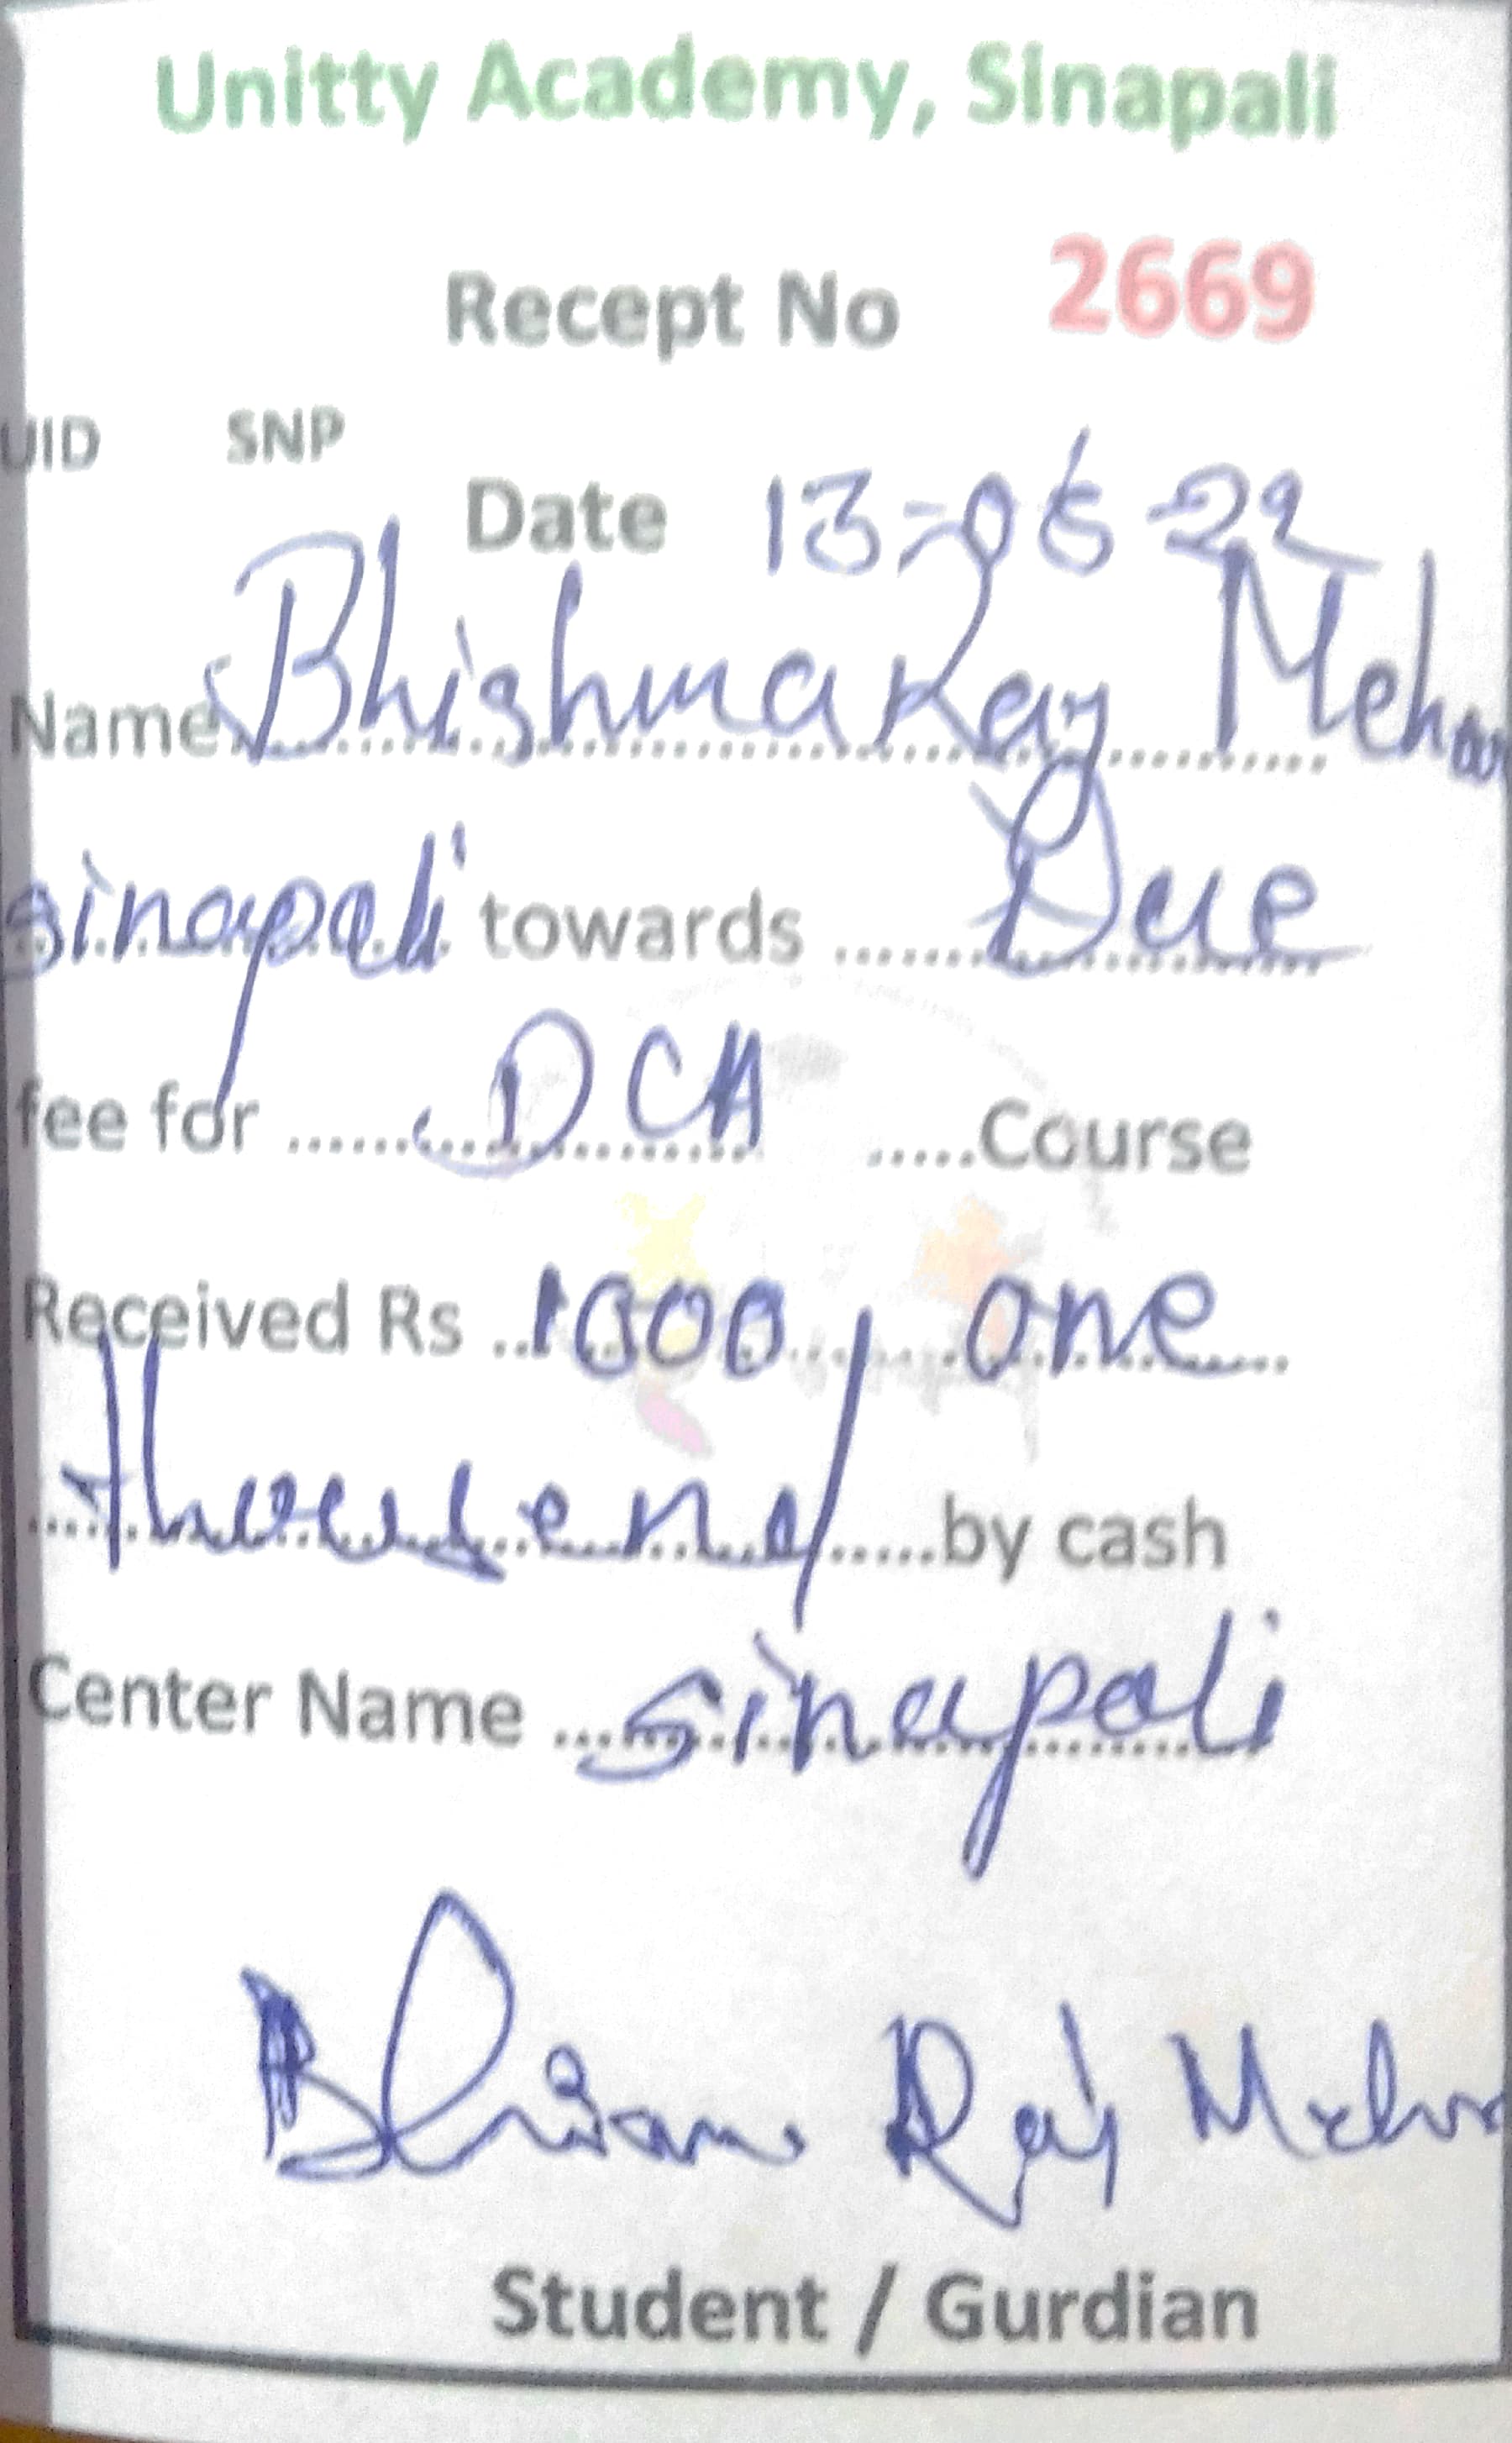 Unitty Academy, Sinapali
Recept No 2669
UID SNP
Date 13-06-22
Name Bhishma Raj Meher
Sinapali towards Due
fee for DCA Course
Received Rs 1000/ one
thousend by cash
Center Name Sinapali
Raj
Student / Gurdian